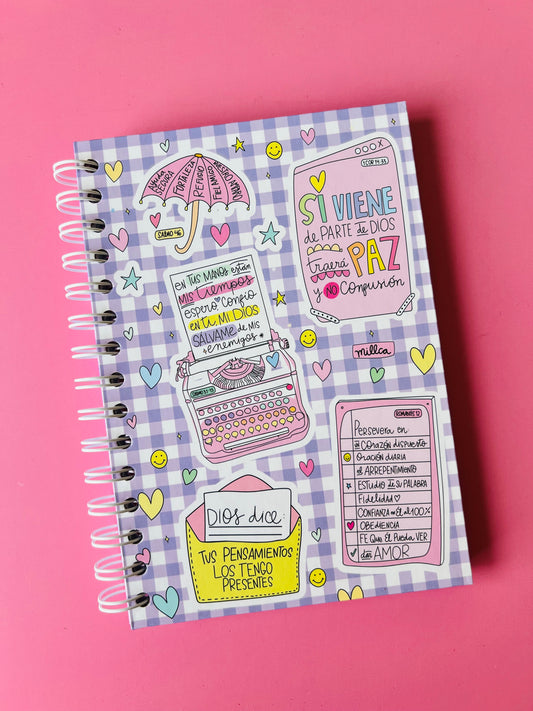 AYUDA
SEGURA
FORTALEZA
REFUGIO
SALMO 46
EN TUS MANOS están
MIS tiempos
espero y confío
en ti, MI DIOS
SÁLVAME de MIS
enemigos
SALMO 31:15
DIOS dice:
TUS PENSAMIENTOS
LOS TENGO
PRESENTES
1 COR 14:33
SI VIENE
de PARTE de DIOS
traerá PAZ
y NO CONFUSIÓN
millca
ROMANOS 12
Persevera en:
un CORAZÓN DISPUESTO
ORACIÓN DIARIA
el ARREPENTIMIENTO
ESTUDIO de SU PALABRA
Fidelidad
CONFIANZA en Él al 100%
OBEDIENCIA
FE QUE ÉL PUEDA VER
dar AMOR